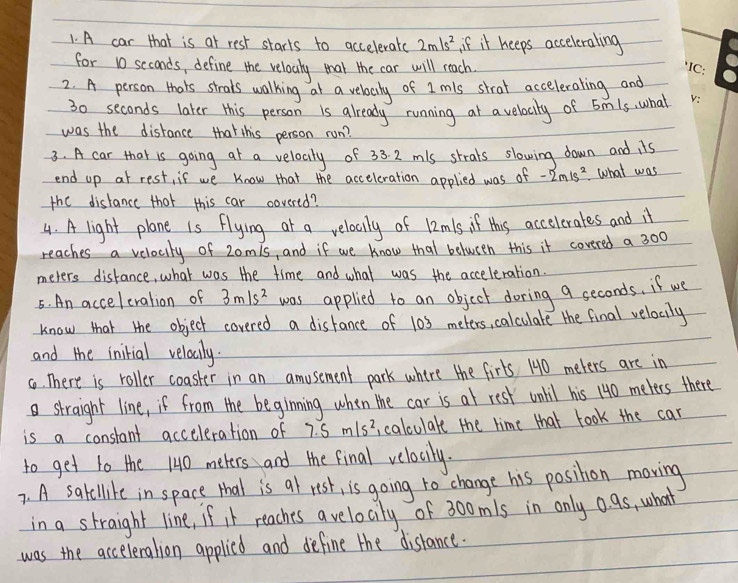 1. A car that is at rest starts to accelerate 2m/s², if it keeps accelerating
for 10 seconds, define the velocity that the car will reach.
IC:
2. A person thots strats walking at a velocity of 1 m/s strat accelerating and
30 seconds later this person is already running at a velocity of 5m/s, what
v:
was the distance that this person run?
3. A car that is going at a velocity of 33.2 m/s strats slowing down and its
end up at rest, if we know that the acceleration applied was of -2m/s². What was
the distance that this car covered?
4. A light plane is flying at a velocity of 12m/s, if this accelerates and it
reaches a velocity of 20m/s, and if we know that between this it covered a 300
meters distance, what was the time and what was the acceleration.
5. An acceleration of 3m/s² was applied to an object doring 9 seconds, if we
know that the object covered a distance of 103 meters, calculate the final velocity
and the initial velocity.
6. There is roller coaster in an amusement park where the firts 140 meters are in
a straight line, if from the beginning when the car is at rest until his 140 meters there
is a constant acceleration of 7.5 m/s², calculate the time that took the car
to get to the 140 meters and the final velocity.
7. A satellite in space that is at rest, is going to change his position moving
in a straight line, if it reaches a velocity of 300m/s in only 0.9s, what
was the acceleration applied and define the distance.